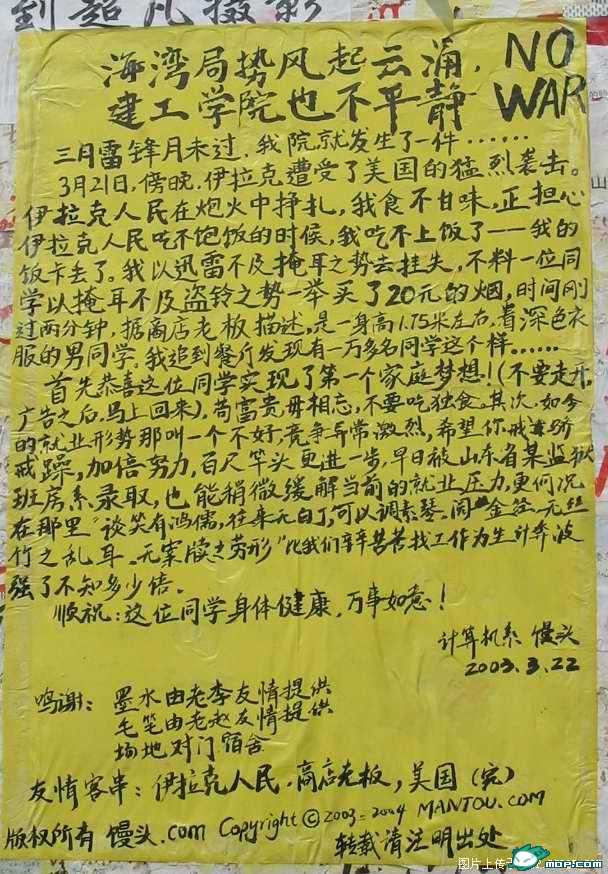 到超凡摄影
海湾局势风起云涌,
建工学院也不平静
NO
WAR
三月雷锋月未过,我院就发生了一件……
3月21日,傍晚,伊拉克遭受了美国的猛烈袭击。
伊拉克人民在炮火中挣扎,我食不甘味,正担心
伊拉克人民吃不饱饭的时候,我吃不上饭了——我的
饭卡丢了。我以迅雷不及掩耳之势去挂失,不料一位同
学以掩耳不及盗铃之势一举买了20元的烟,时间刚
过两分钟,据商店老板描述,是一身高1.75米左右,着深色衣
服的男同学。我追到餐厅发现有一万多名同学这个样……
首先恭喜这位同学实现了第一个家庭梦想!(不要走开,
广告之后,马上回来),苟富贵毋相忘,不要吃独食。其次,如今
的就业形势那叫一个不好,竞争异常激烈,希望你戒骄
戒躁,加倍努力,百尺竿头更进一步,早日被山东省某监狱
班房系录取,也能稍微缓解当前的就业压力,更何况
在那里"谈笑有鸿儒,往来无白丁,可以调素琴,阅金经。无丝
竹之乱耳,无案牍之劳形"比我们辛辛苦苦找工作为生计奔波
强了不知多少倍。
顺祝:这位同学身体健康,万事如意!
计算机系 馒头
2003.3.22
鸣谢: 墨水由老李友情提供
毛笔由老赵友情提供
场地对门宿舍
友情客串:伊拉克人民,商店老板,美国(完)
版权所有 馒头.com Copyright©2003-2004 MANTOU.COM
转载请注明出处
图片上传
mop.com